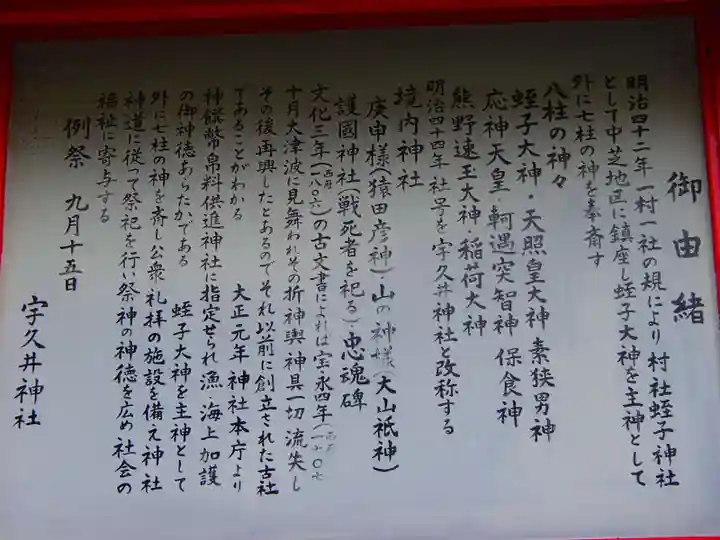 御由緒
明治四十二年一村一社の規により村社蛭子神社
として中芝地区に鎮座し蛭子大神を主神として
外に七柱の神を奉斎す
八柱の神々
蛭子大神・天照皇大神 素狭男神
応神天皇・軻遇突智神 保食神
熊野速玉大神・稲荷大神
明治四十四年 社号を宇久井神社と改称する
境内神社
庚申様(猿田彦神)山の神様(大山祇神)
護國神社(戦死者を祀る)・忠魂碑
文化三年(西暦一八〇六)の古文書によれば宝永四年(西暦一七〇七
十月大津波に見舞われその折神輿神具一切流失し
その後再興したとあるのでそれ以前に創立された古社
であることがわかる 大正元年 神社本庁より
神饌幣帛料供進神社に指定せられ漁海上加護
の御神徳あらたかである 蛭子大神を主神として
外に七柱の神を斎し公衆礼拝の施設を備え神社
神道に従って祭祀を行い祭神の神徳を広め社会の
福祉に寄与する
例祭 九月十五日
宇久井神社